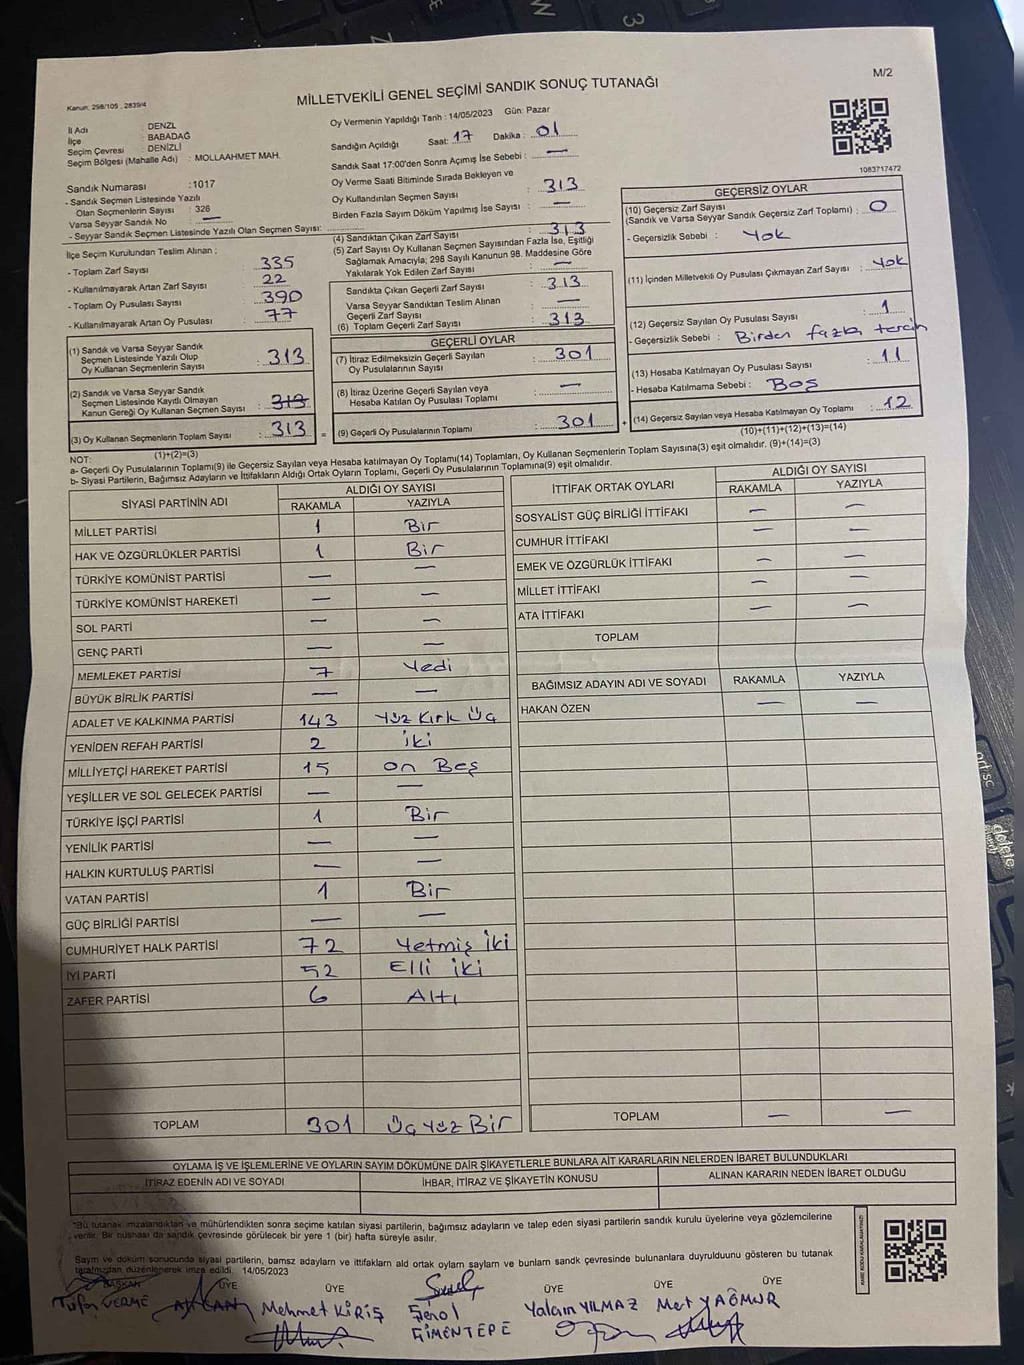 M/2
MİLLETVEKİLİ GENEL SEÇİMİ SANDIK SONUÇ TUTANAĞI
Kanun: 298/105 , 2839/4
Oy Vermenin Yapıldığı Tarih : 14/05/2023 Gün: Pazar
İl Adı : DENZL
İlçe : BABADAĞ
Seçim Çevresi : DENİZLİ
Seçim Bölgesi (Mahalle Adı) : MOLLAAHMET MAH.
Sandığın Açıldığı Saat: 17 Dakika : 01
Sandık Saat 17:00'den Sonra Açımış İse Sebebi : —
Oy Verme Saati Bitiminde Sırada Bekleyen ve
Oy Kullandırılan Seçmen Sayısı : 313
Birden Fazla Sayım Döküm Yapılmış İse Sayısı : —
1083717472
Sandık Numarası : 1017
- Sandık Seçmen Listesinde Yazılı
Olan Seçmenlerin Sayısı : 326
Varsa Seyyar Sandık No : —
- Seyyar Sandık Seçmen Listesinde Yazılı Olan Seçmen Sayısı:
İlçe Seçim Kurulundan Teslim Alınan :
- Toplam Zarf Sayısı : 335
- Kullanılmayarak Artan Zarf Sayısı : 22
- Toplam Oy Pusulası Sayısı : 390
- Kullanılmayarak Artan Oy Pusulası : 77
(1) Sandık ve Varsa Seyyar Sandık
Seçmen Listesinde Yazılı Olup
Oy Kullanan Seçmenlerin Sayısı : 313
(2) Sandık ve Varsa Seyyar Sandık
Seçmen Listesinde Kayıtlı Olmayan
Kanun Gereği Oy Kullanan Seçmen Sayısı : 313
(3) Oy Kullanan Seçmenlerin Toplam Sayısı : 313
(1)+(2)=(3)
(4) Sandıktan Çıkan Zarf Sayısı : 313
(5) Zarf Sayısı Oy Kullanan Seçmen Sayısından Fazla İse, Eşitliği
Sağlamak Amacıyla; 298 Sayılı Kanunun 98. Maddesine Göre
Yakılarak Yok Edilen Zarf Sayısı : —
Sandıkta Çıkan Geçerli Zarf Sayısı : 313
Varsa Seyyar Sandıktan Teslim Alınan
Geçerli Zarf Sayısı : —
(6) Toplam Geçerli Zarf Sayısı : 313
GEÇERLİ OYLAR
(7) İtiraz Edilmeksizin Geçerli Sayılan
Oy Pusulasının Sayısı : 301
(8) İtiraz Üzerine Geçerli Sayılan veya
Hesaba Katılan Oy Pusulası Toplamı : —
= (9) Geçerli Oy Pusulalarının Toplamı : 301
GEÇERSİZ OYLAR
(10) Geçersiz Zarf Sayısı
(Sandık ve Varsa Seyyar Sandık Geçersiz Zarf Toplamı) : 0
- Geçersizlik Sebebi : Yok
(11) İçinden Milletvekili Oy Pusulası Çıkmayan Zarf Sayısı : Yok
(12) Geçersiz Sayılan Oy Pusulası Sayısı : 1
- Geçersizlik Sebebi : Birden fazla tercih
(13) Hesaba Katılmayan Oy Pusulası Sayısı : 11
- Hesaba Katılmama Sebebi : Boş
+ (14) Geçersiz Sayılan veya Hesaba Katılmayan Oy Toplamı : 12
(10)+(11)+(12)+(13)=(14)
NOT:
a- Geçerli Oy Pusulalarının Toplamı(9) ile Geçersiz Sayılan veya Hesaba katılmayan Oy Toplamı(14) Toplamları, Oy Kullanan Seçmenlerin Toplam Sayısına(3) eşit olmalıdır. (9)+(14)=(3)
b- Siyasi Partilerin, Bağımsız Adayların ve İttifakların Aldığı Ortak Oyların Toplamı, Geçerli Oy Pusulalarının Toplamına(9) eşit olmalıdır.
SİYASİ PARTİNİN ADI ALDIĞI OY SAYISI
RAKAMLA YAZIYLA
MİLLET PARTİSİ 1 Bir
HAK VE ÖZGÜRLÜKLER PARTİSİ 1 Bir
TÜRKİYE KOMÜNİST PARTİSİ — —
TÜRKİYE KOMÜNİST HAREKETİ — —
SOL PARTİ — —
GENÇ PARTİ — —
MEMLEKET PARTİSİ 7 Yedi
BÜYÜK BİRLİK PARTİSİ — —
ADALET VE KALKINMA PARTİSİ 143 Yüz Kırk Üç
YENİDEN REFAH PARTİSİ 2 İki
MİLLİYETÇİ HAREKET PARTİSİ 15 On Beş
YEŞİLLER VE SOL GELECEK PARTİSİ — —
TÜRKİYE İŞÇİ PARTİSİ 1 Bir
YENİLİK PARTİSİ — —
HALKIN KURTULUŞ PARTİSİ — —
VATAN PARTİSİ 1 Bir
GÜÇ BİRLİĞİ PARTİSİ — —
CUMHURİYET HALK PARTİSİ 72 Yetmiş İki
İYİ PARTİ 52 Elli İki
ZAFER PARTİSİ 6 Altı
TOPLAM 301 Üç Yüz Bir
İTTİFAK ORTAK OYLARI ALDIĞI OY SAYISI
RAKAMLA YAZIYLA
SOSYALİST GÜÇ BİRLİĞİ İTTİFAKI — —
CUMHUR İTTİFAKI — —
EMEK VE ÖZGÜRLÜK İTTİFAKI — —
MİLLET İTTİFAKI — —
ATA İTTİFAKI — —
TOPLAM
BAĞIMSIZ ADAYIN ADI VE SOYADI RAKAMLA YAZIYLA
HAKAN ÖZEN — —
TOPLAM — —
OYLAMA İŞ VE İŞLEMLERİNE VE OYLARIN SAYIM DÖKÜMÜNE DAİR ŞİKAYETLERLE BUNLARA AİT KARARLARIN NELERDEN İBARET BULUNDUKLARI
İTİRAZ EDENİN ADI VE SOYADI İHBAR, İTİRAZ VE ŞİKAYETİN KONUSU ALINAN KARARIN NEDEN İBARET OLDUĞU
"Bu tutanak imzalandıktan ve mühürlendikten sonra seçime katılan siyasi partilerin, bağımsız adayların ve talep eden siyasi partilerin sandık kurulu üyelerine veya gözlemcilerine
verilir. Bir nüshası da sandık çevresinde görülecek bir yere 1 (bir) hafta süreyle asılır.
Saym ve döküm sonucunda siyasi partilerin, bamsz adaylarn ve ittifaklarn ald ortak oylarn saylarn ve bunlarn sandk çevresinde bulunanlara duyrulduunu gösteren bu tutanak
tarafmzdan düzenlenerek imza edildi. 14/05/2023
BAŞKAN ÜYE ÜYE ÜYE ÜYE ÜYE
Mehmet KİRİŞ Şenol ÇİMENTEPE Yalçın YILMAZ Mert YAĞMUR